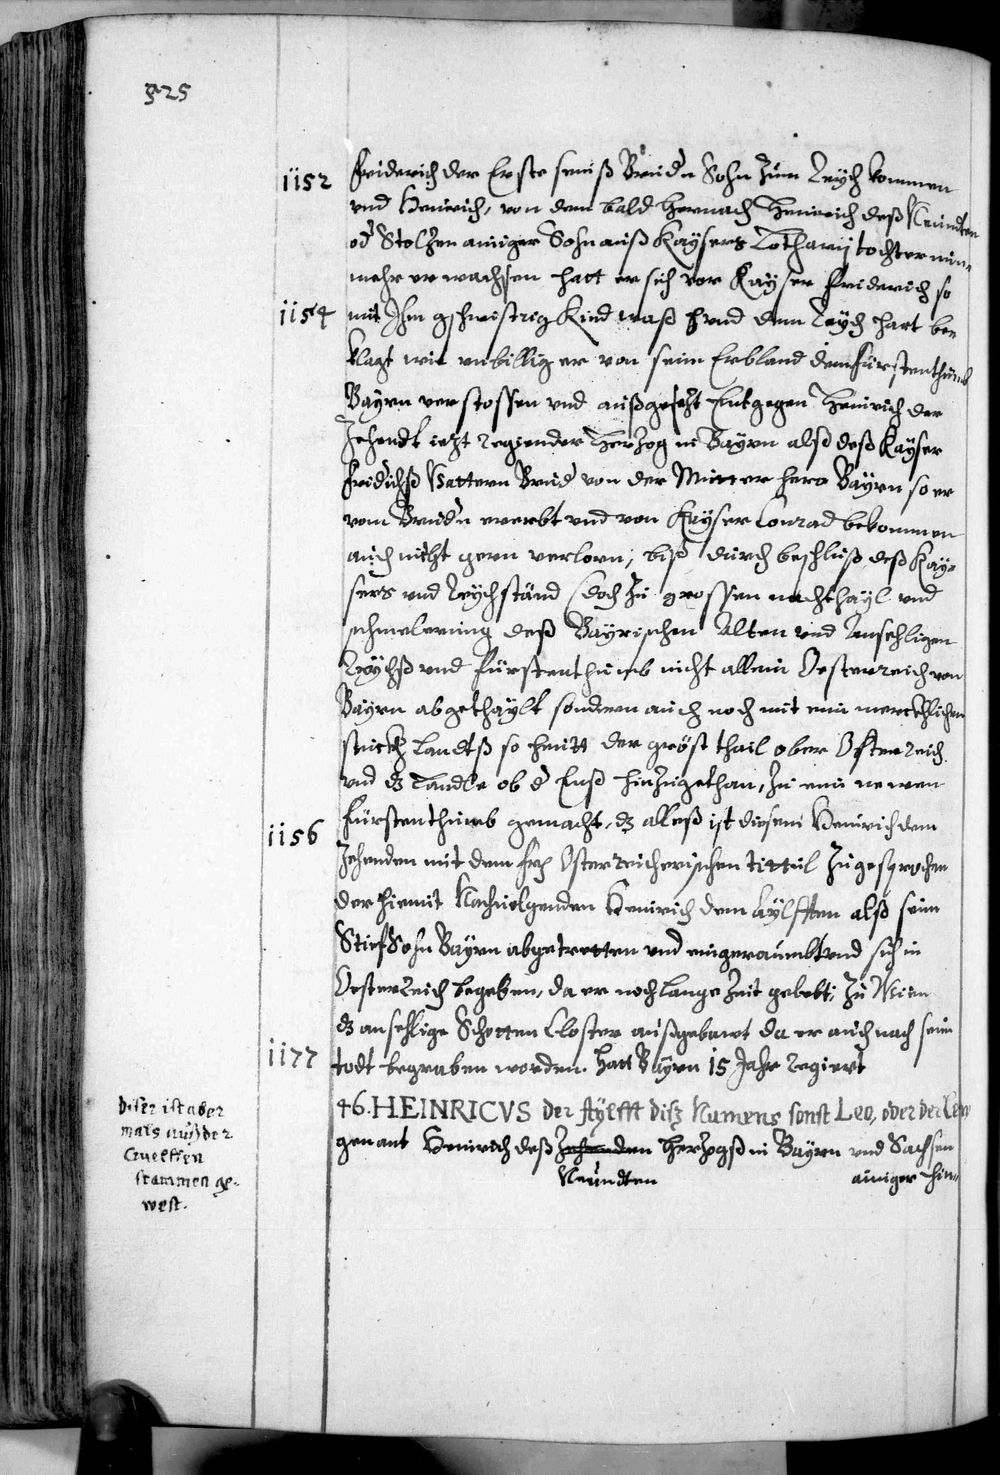 325
1152 Friderich der Erste seineß Brudern Sohn zum Reych kommen
vnd Heinrich, von dem bald hernach Heinrich deß Neundten
od Stolzen ainiger Sohn auß Kaysers Lotharij tochter nun-
mehr erwachsen hatt er sich vor Kayser Friderich so
1154 mit Ihm gschwistrig Kind waß vnd dem Reych hart be-
klagt wie vnbillig er von seim Erbland dem Fürstenthumb
Bayrn verstossen vnd außgesetzt Entgegen Heinrich der
Zehendt iezt regierender Herzog in Bayrn alß deß Kayser
Fridrichß Vattern Brud von der Mutter hero Bayrn so er
vom Brudern ererbt vnd von Kayser Conrad bekommen
auch nicht gern verlorn; biß durch beschluß deß Kay-
sers vnd Reychständ (doch zu grossen nachthayl vnd
schmelerung deß Bayrischen Alten vnd Ansehligen
Reychß vnd Fürstenthumb nicht allein Oesterreich von
Bayrn abgethaylt sondern auch noch mit eim mercklichen
stuckh Landtß so heutt der gröst thail ober Osterreich
vnd dz Landle ob d Enß hinzugethan, zu eim newen
Fürstenthumb gemacht, dz alleß ist disem Heinrich dem
1156 Zehenden mit dem Erz Osterreicherischen tittul zugesprochen
der hiemit Nachuolgenden Heinrich dem Aylfften alß seim
StiefSohn Bayrn abgetretten vnd eingeraumbt vnd sich in
Oesterreich begeben, da er noch lange Zeit gelebt; zu Wien
dz ansehlige Schotten Closter außgebawt da er auch nach seim
1177 todt begraben worden. Hatt Bayrn 15 Jahr regiert
46. HEINRICVS der Aylfft diß Namens sonst Leo, oder der Lew
genant Heinrich deß Zehenden Herzogß in Bayrn vnd Sachsen
Neundten ainiger hin-
Diser ist aber
mals auß der
Guelffen
stammen ge-
west.